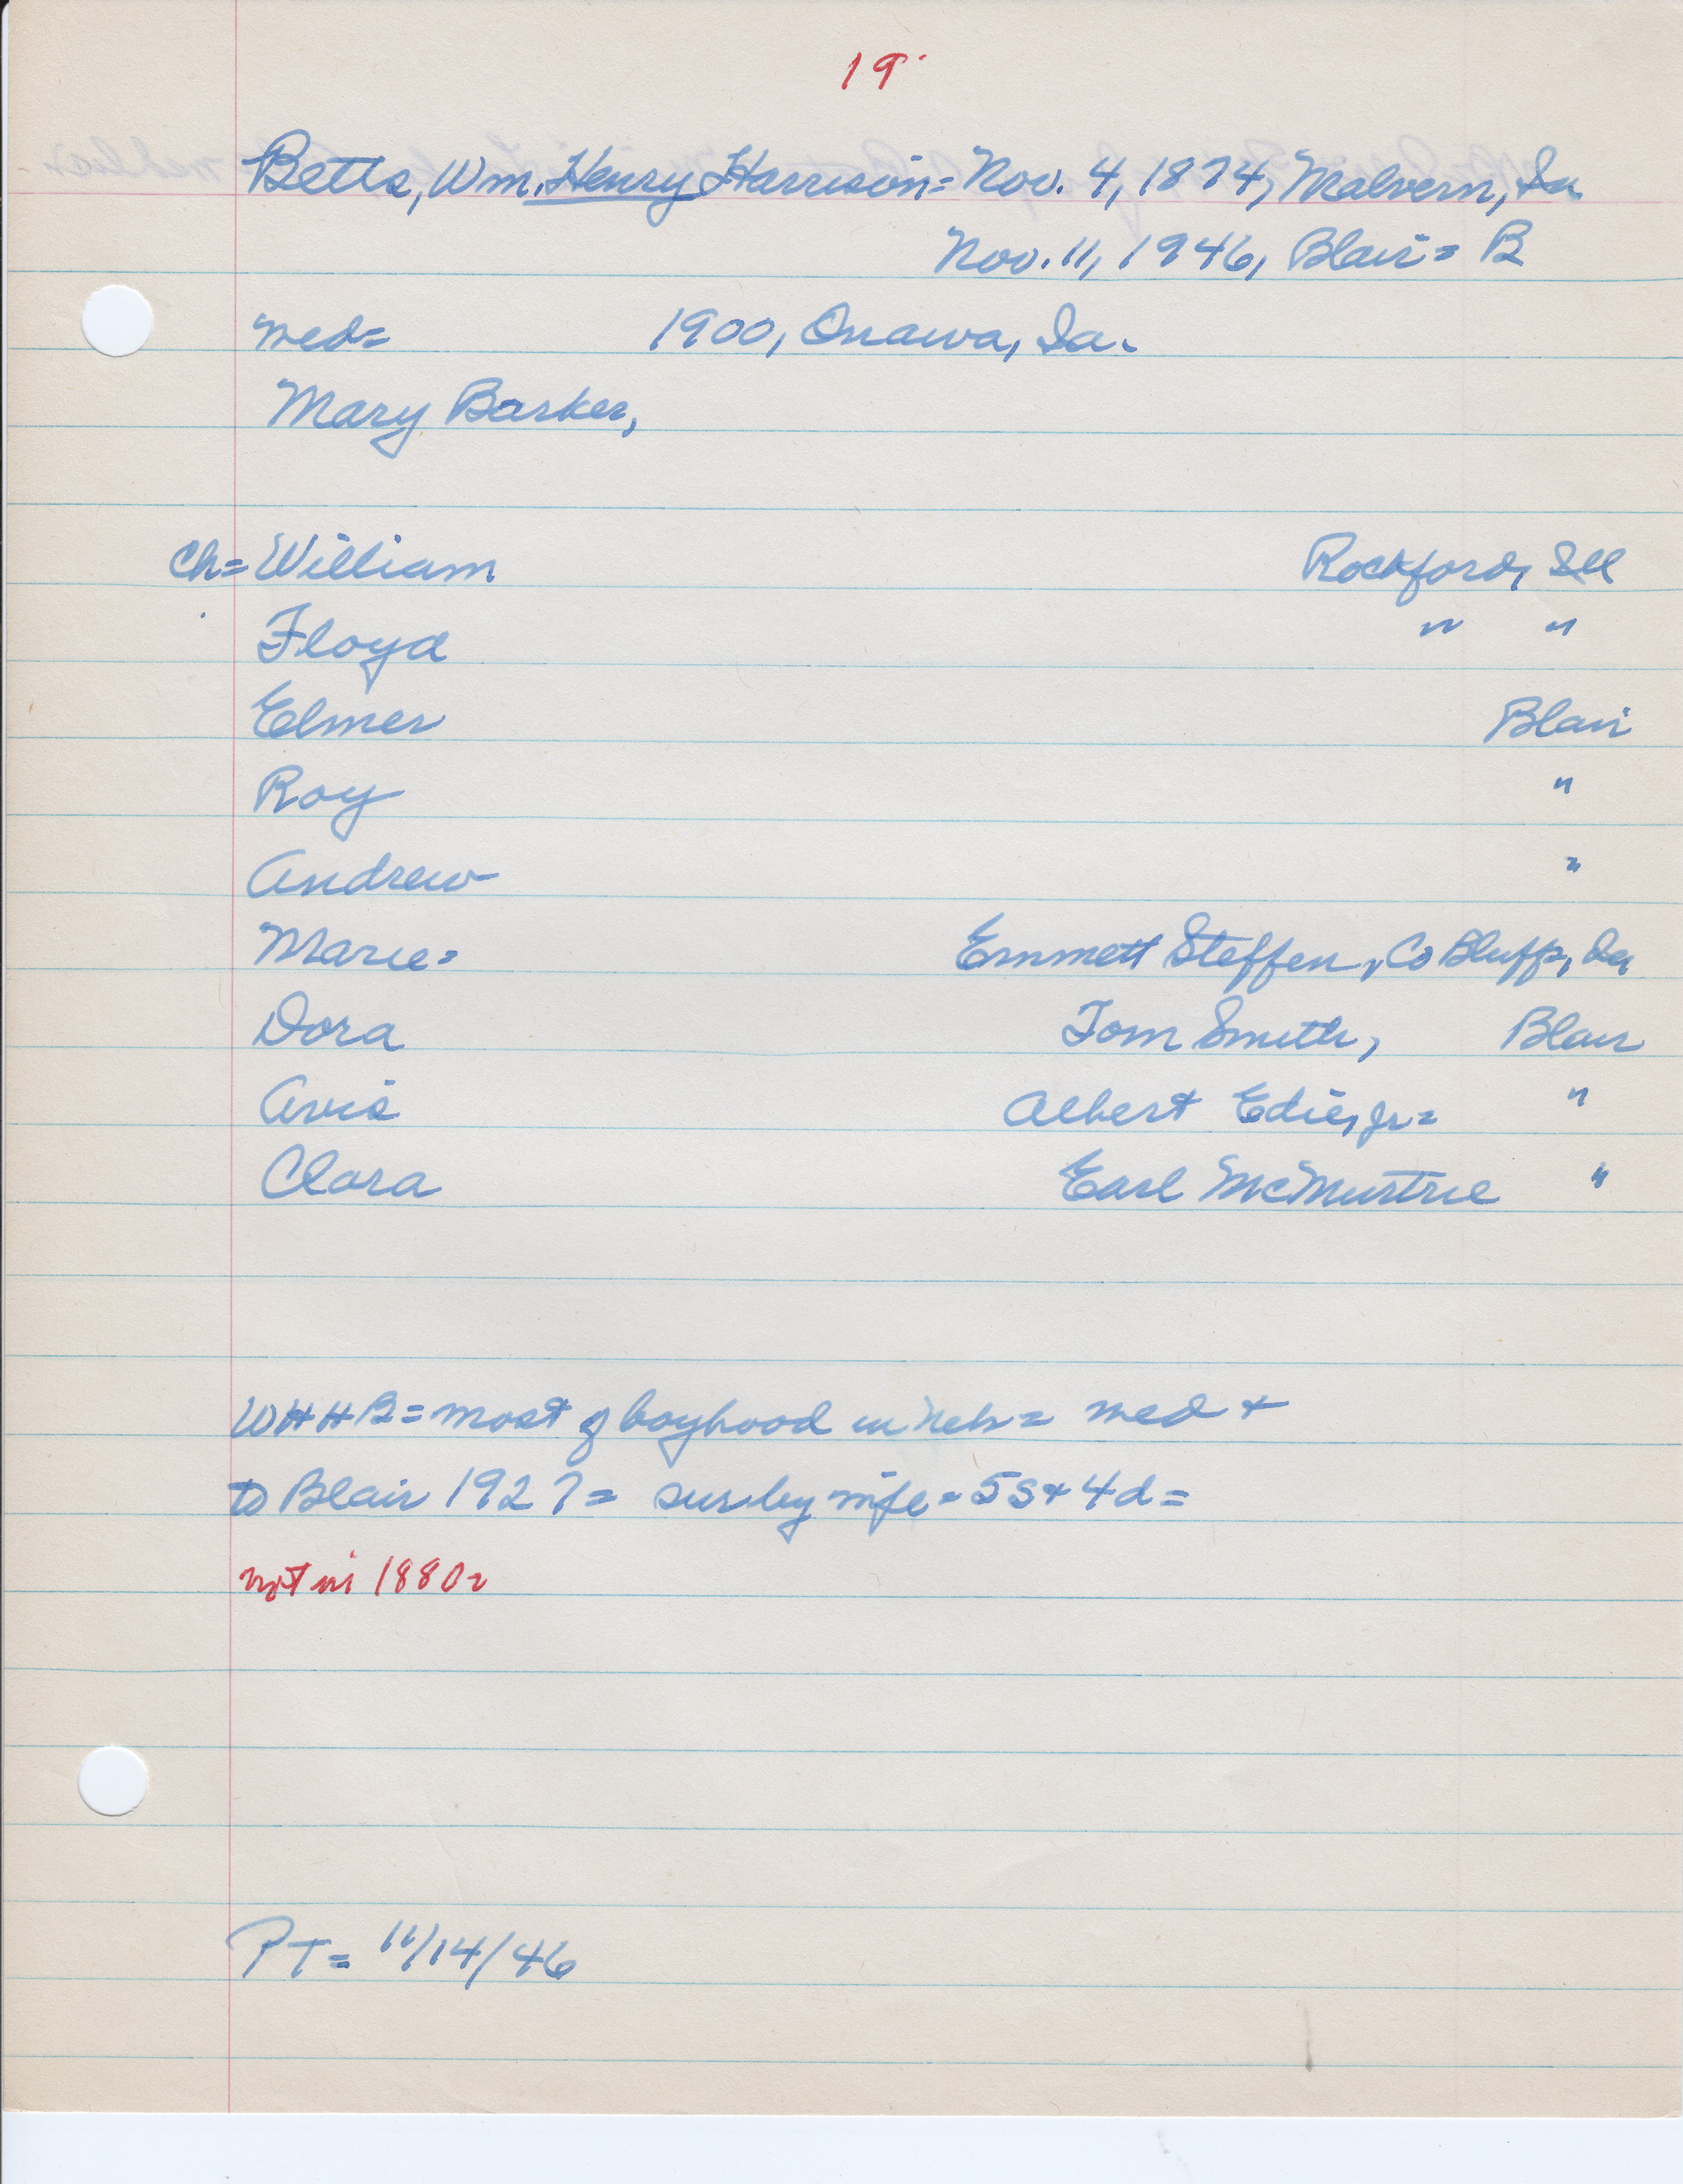 19
Betts, Wm. Henry Harrison = Nov. 4, 1874, Malvern, Ia
Nov. 11, 1946, Blair = B
med = 1900, Onawa, Ia.
Mary Barker,
Ch = William Rockford, Ill
Floyd " "
Elmer Blair
Roy "
Andrew "
Marie = Emmett Steffen, Co Bluffs, Ia
Dora Tom Smith, Blair
Avis Albert Edie, Jr = "
Clara Earl McMurtrie "
WHHB = most of boyhood in Neb = med +
to Blair 1927 = sur by wife = 5s + 4d =
not in 1880 =
PT = 11/14/46